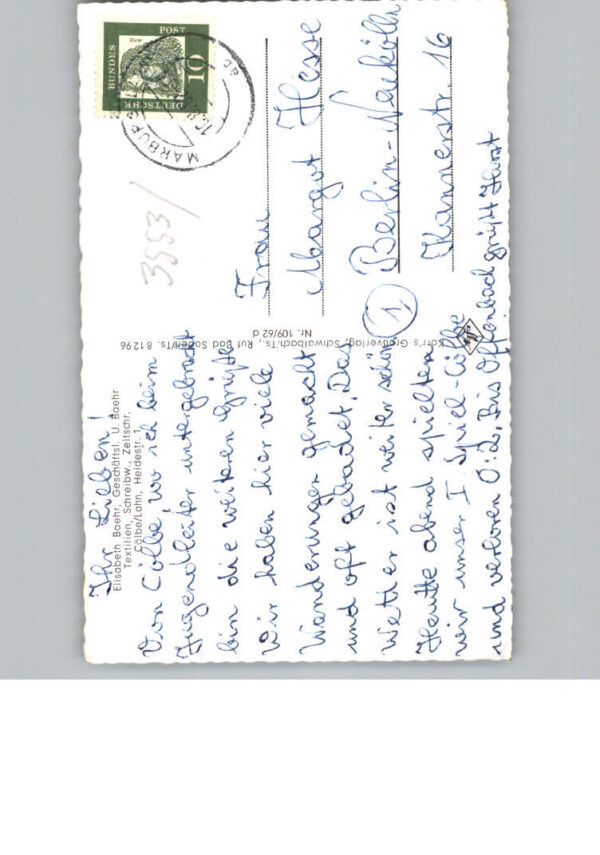 Ihr Lieben!
Elisabeth Baehr, Geschäftsl. U. Baehr
Textilien, Schreibw., Zeitschr.
Cölbe/Lahn, Heidestr. 1
Von Cölbe, wo ich beim
Jugendleiter untergebracht
bin die weiteren Grüße
Wir haben hier viele
Wanderungen gemacht
und oft gebadet. Das
Wetter ist weiter schön
Heute abend spielten
wir unser I. Spiel-Cölbe
und verloren 0:2. Bis Offenbach grüßt Horst
Korr's Großverlag, Schwalbach/Ts., Ruf Bad Soden/Ts. 81296
Nr. 109/62 d
3553/
DEUTSCHE BUNDESPOST
10
MARBURG
Frau
Margot Hesse
1 Berlin-Neukölln
Kannerstr. 16